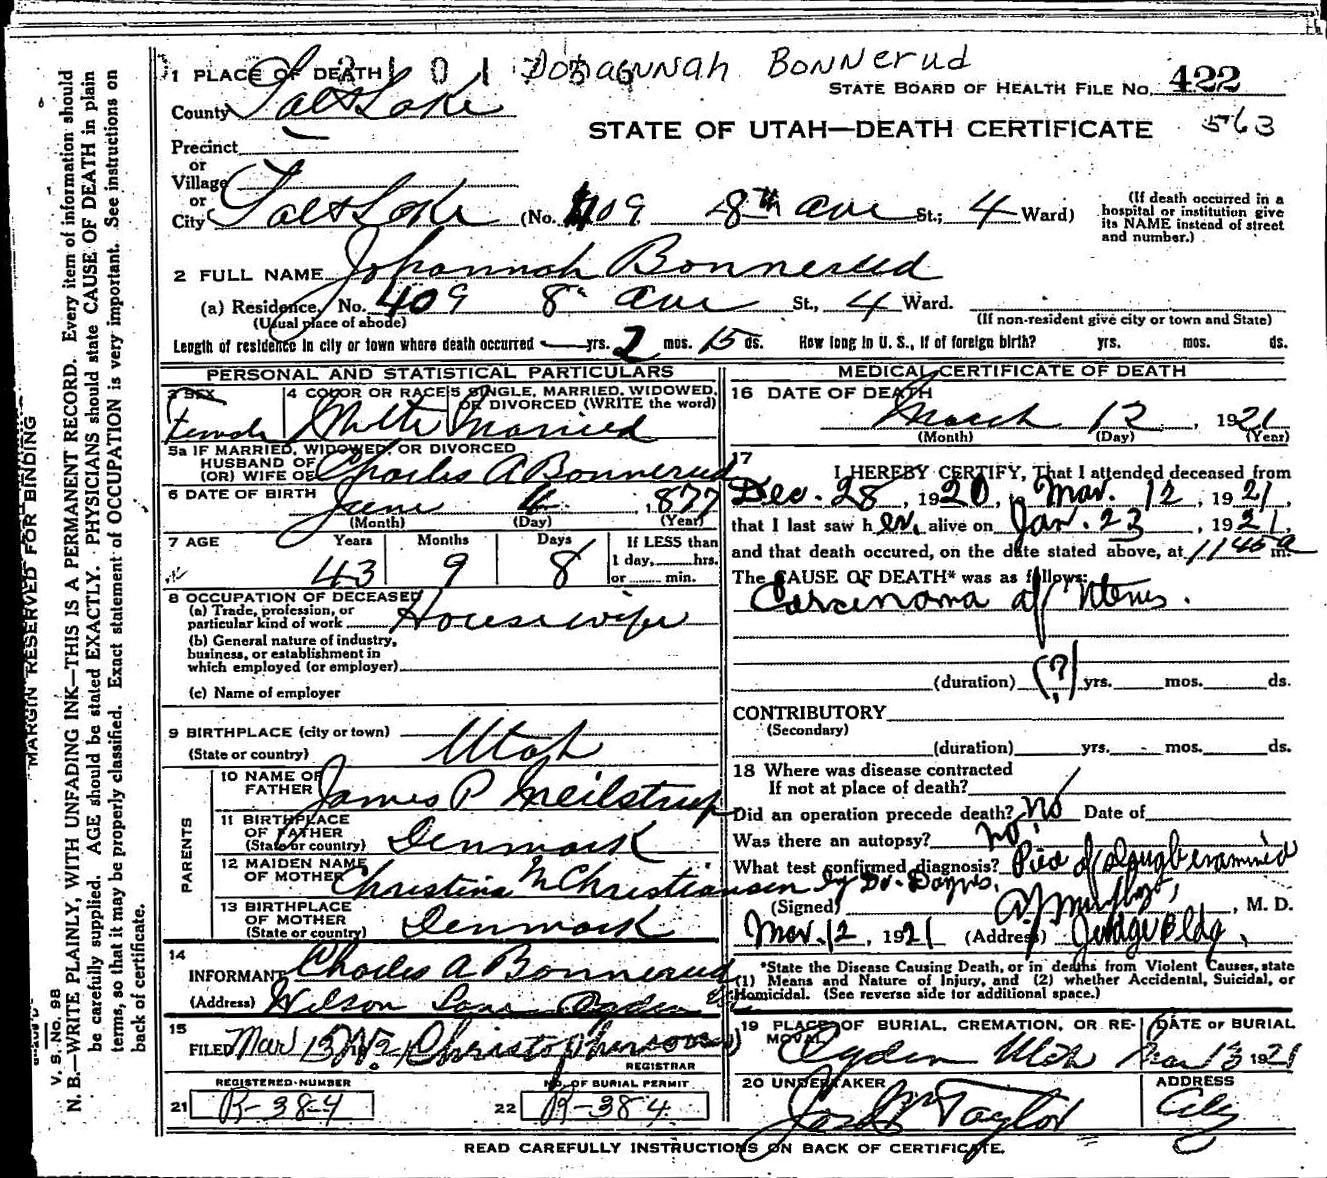 Johannah Bonnerud
1 PLACE OF DEATH
STATE BOARD OF HEALTH FILE No. 422
County Salt Lake
STATE OF UTAH—DEATH CERTIFICATE 563
Precinct
or
Village
or
City Salt Lake (No. 409 8th ave St.; 4 Ward)
(If death occurred in a
hospital or institution give
its NAME instead of street
and number.)
2 FULL NAME Johannah Bonnerud
(a) Residence, No. 409 8" ave St., 4 Ward.
(Usual place of abode)
(If non-resident give city or town and State)
Length of residence in city or town where death occurred — yrs. 2 mos. 15 ds. How long in U. S., if of foreign birth? yrs. mos. ds.
PERSONAL AND STATISTICAL PARTICULARS
3 SEX
Female
4 COLOR OR RACE
White
5 SINGLE, MARRIED, WIDOWED,
OR DIVORCED (WRITE the word)
Married
5a IF MARRIED, WIDOWED, OR DIVORCED
HUSBAND OF
(OR) WIFE OF Charles A Bonnerud
6 DATE OF BIRTH June 4, 1877
(Month) (Day) (Year)
7 AGE Years Months Days
43 9 8
If LESS than
1 day,......hrs.
or ...... min.
8 OCCUPATION OF DECEASED
(a) Trade, profession, or
particular kind of work Housewife
(b) General nature of industry,
business, or establishment in
which employed (or employer)
(c) Name of employer
9 BIRTHPLACE (city or town)
(State or country) Utah
PARENTS
10 NAME OF
FATHER James P Neilstrup
11 BIRTHPLACE
OF FATHER
(State or country) Denmark
12 MAIDEN NAME
OF MOTHER Christina N Christiansen
13 BIRTHPLACE
OF MOTHER
(State or country) Denmark
14
INFORMANT Charles A Bonnerud
(Address) Wilson Lane Ogden
15
FILED Mar 13 Christopherson
REGISTRAR
REGISTERED NUMBER
21 R-384
NO. OF BURIAL PERMIT
22 R-384
MEDICAL CERTIFICATE OF DEATH
16 DATE OF DEATH
March 12, 1921
(Month) (Day) (Year)
17
I HEREBY CERTIFY, That I attended deceased from
Dec. 28, 1920, Mar. 12, 1921,
that I last saw her alive on Jan. 23, 1921,
and that death occured, on the date stated above, at 1145 a m.
The CAUSE OF DEATH* was as follows:
Carcinoma of Uterus.
(duration) (?) yrs. mos. ds.
CONTRIBUTORY
(Secondary)
(duration) yrs. mos. ds.
18 Where was disease contracted
If not at place of death?
Did an operation precede death? No Date of
Was there an autopsy? no.
What test confirmed diagnosis? examined
by Dr.
(Signed) , M. D.
Mar. 12, 1921 (Address) Judge Bldg.
*State the Disease Causing Death, or in deaths from Violent Causes, state
(1) Means and Nature of Injury, and (2) whether Accidental, Suicidal, or
Homicidal. (See reverse side for additional space.)
19 PLACE OF BURIAL, CREMATION, OR RE-
MOVAL
Ogden Utah
DATE OF BURIAL
Mar 13 1921
20 UNDERTAKER
Taylor
ADDRESS
City
READ CAREFULLY INSTRUCTIONS ON BACK OF CERTIFICATE.
MARGIN RESERVED FOR BINDING
V. S. No. 8B
N. B.—WRITE PLAINLY, WITH UNFADING INK—THIS IS A PERMANENT RECORD. Every item of information should
be carefully supplied. AGE should be stated EXACTLY. PHYSICIANS should state CAUSE OF DEATH in plain
terms, so that it may be properly classified. Exact statement of OCCUPATION is very important. See instructions on
back of certificate.